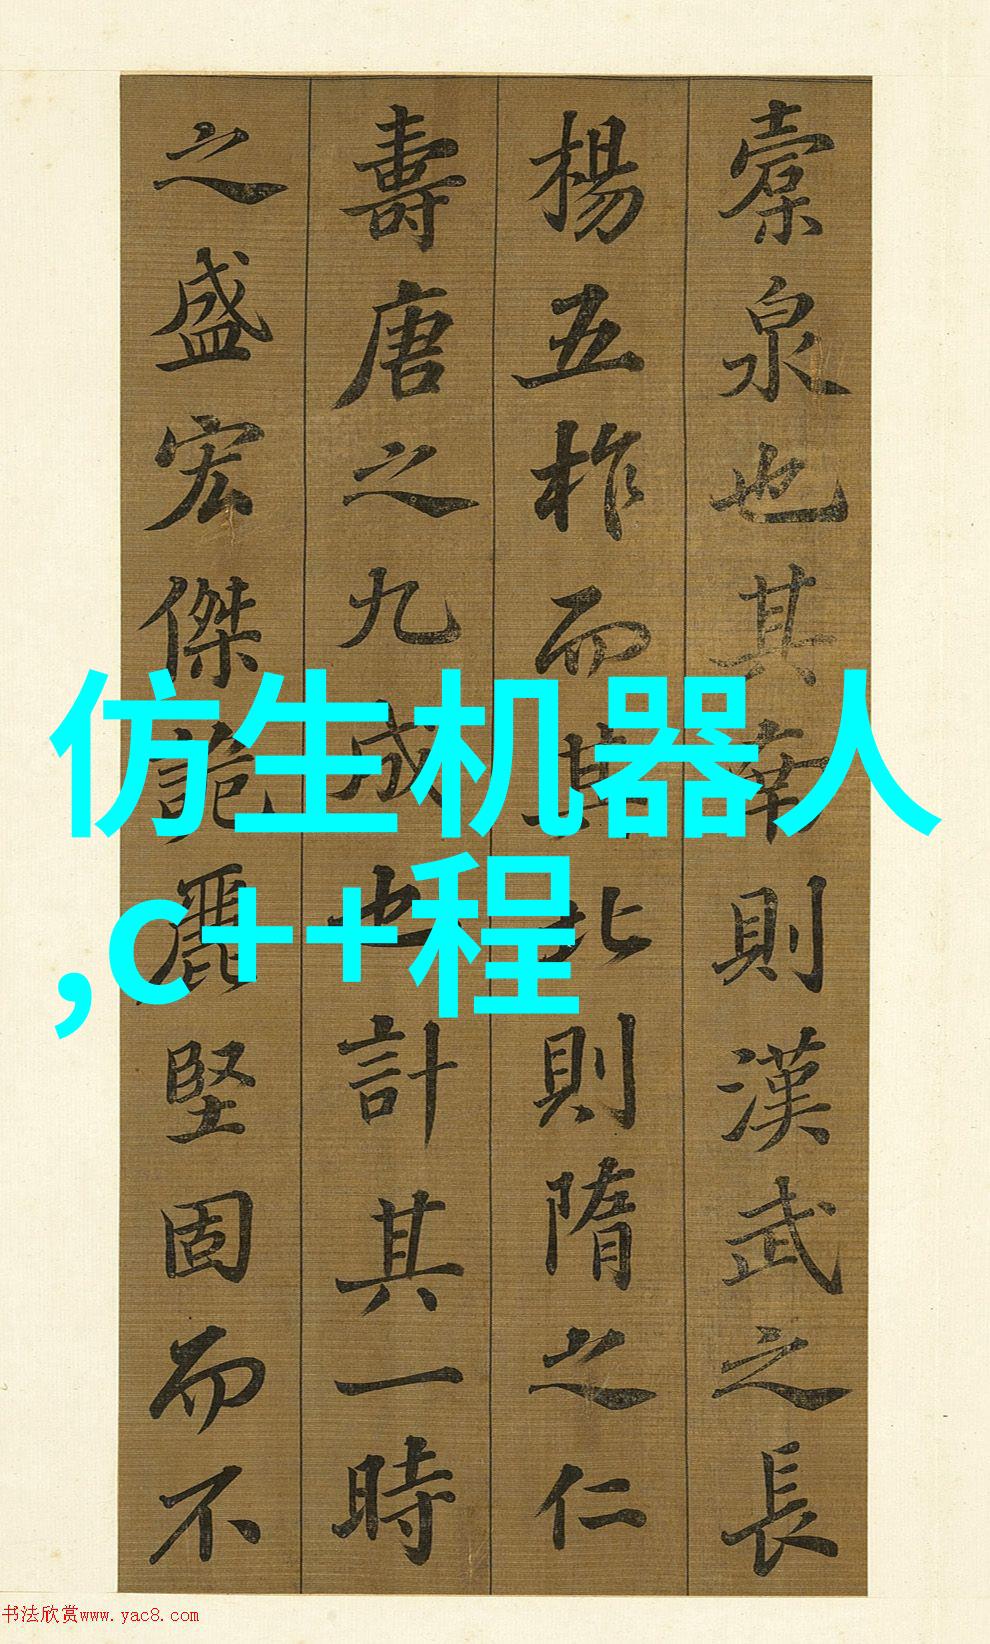 橐泉也其南則漢武之長
楊五柞而其北則隋之仁
壽唐之九成也計其一時
之盛宏傑詭麗堅固而不
仿生机器人
,c++程
书法欣赏www.yac8.com